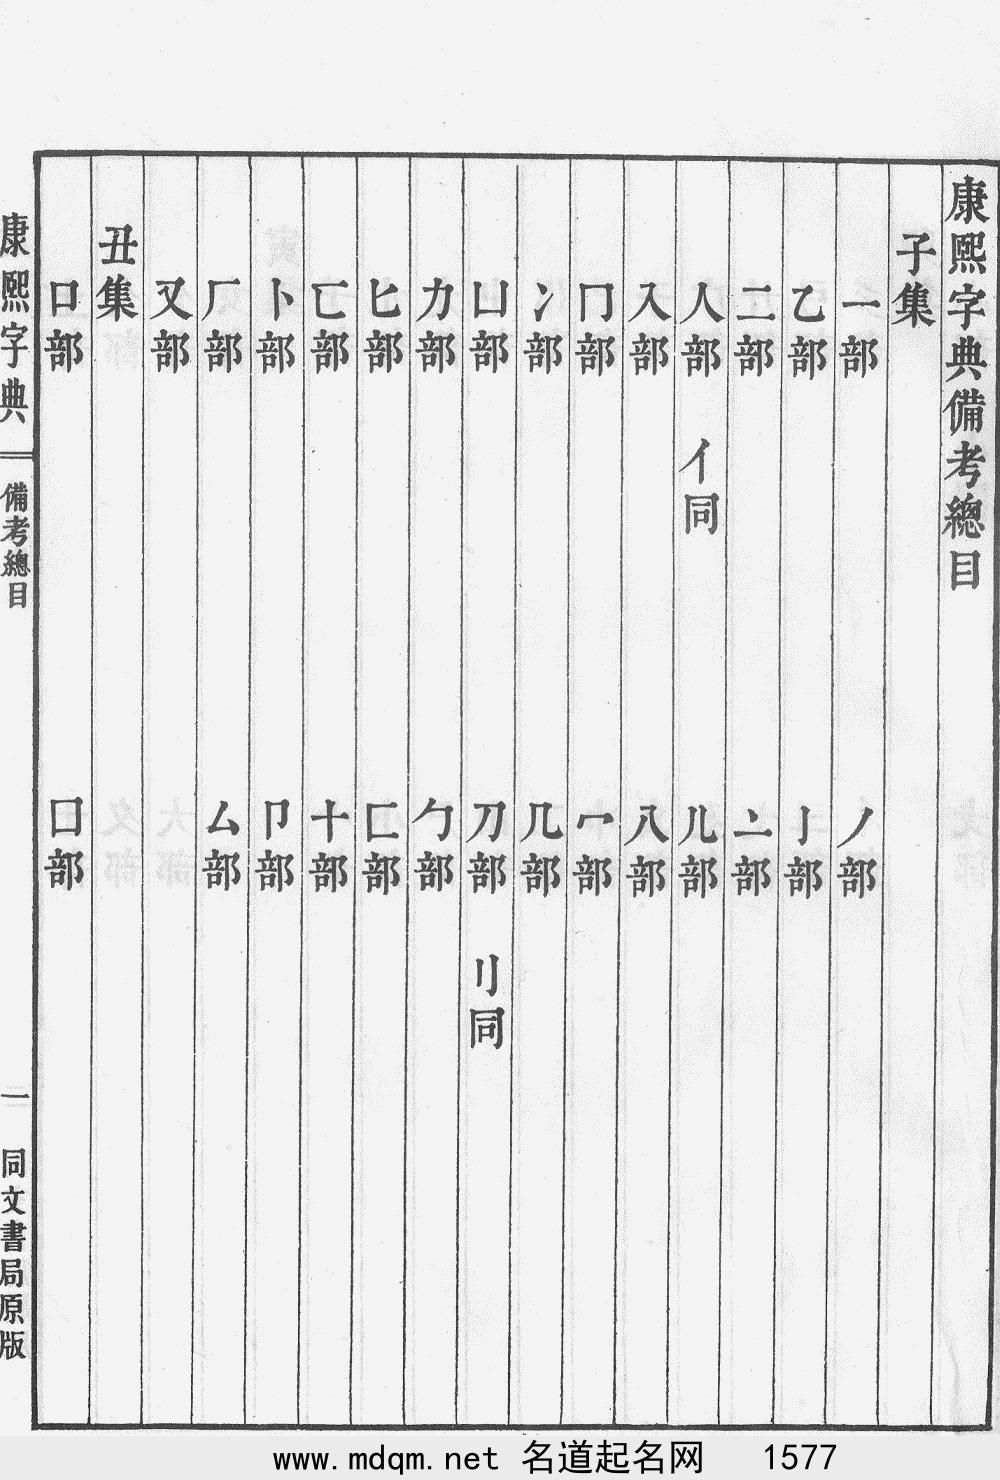 康熙字典備考總目
子集
一部 丿部
乙部 亅部
二部 亠部
人部 亻同 儿部
入部 八部
冂部 冖部
冫部 几部
凵部 刀部 刂同
力部 勹部
匕部 匚部
匸部 十部
卜部 卩部
厂部 厶部
又部
丑集
口部 囗部
康熙字典 備考總目 一 同文書局原版
www.mdqm.net 名道起名网 1577